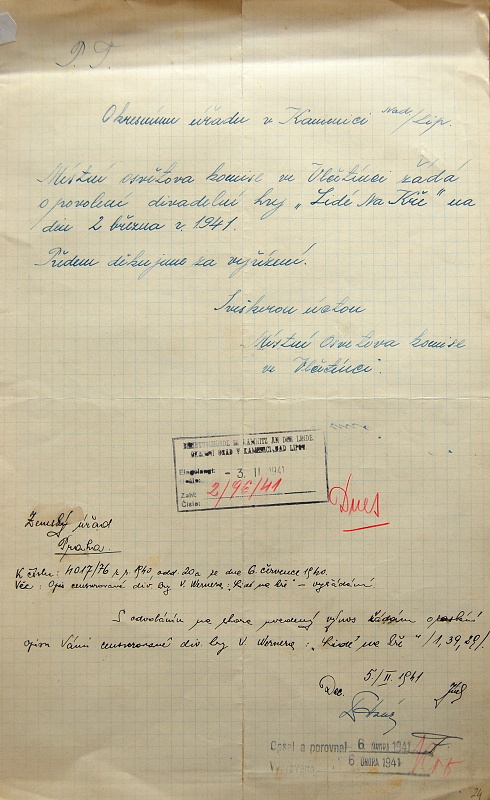 P. T.
Okresnímu úřadu v Kamenici nad/Lip.
Místní osvětova komise ve Vlčetínci žádá
o povolení divadelní hry „Lidé Na Kře" na
den 2 března r. 1941.
Předem děkujeme za vyřízení.
S veškerou úctou
Místní Osvětova komise
ve Vlčetínci.
BEZIRKSBEHÖRDE IN KAMNITZ AN DER LINDE
OKRESNÍ ÚŘAD V KAMENICI NAD LIPOU
Eingelangt:
Došlo:
- 3. II. 1941
Zahl:
Číslo:
2/96/41
Dnes
Zemský úřad
Praha.
K číslu: 4017/76 z r. 1940, odd. 20a ze dne 6. července 1940.
Věc: Opis censurované div. hry V. Wernera: „Lidé na kře" – vyžádání
S odvoláním na shora uvedený výnos žádám o zaslání
opisu Vámi censurované div. hry V. Wernera: „Lidé na kře" /1,39,29/.
5/II 1941
Opsal a porovnal 6. ÚNORA 1941
6 ÚNORA 1941
24